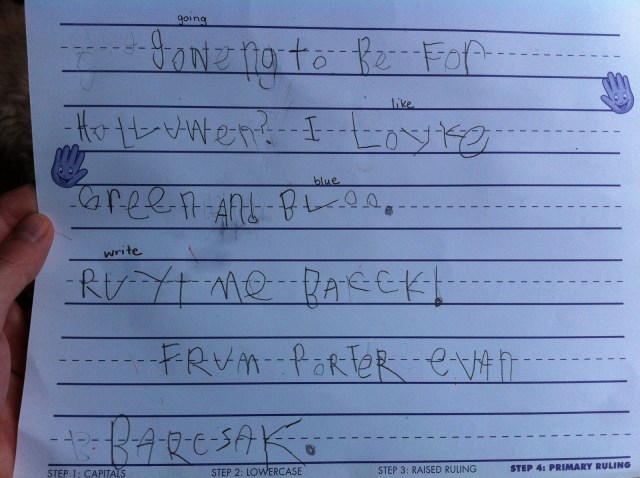 going
goweng to Be For
like
HoLLuWen? I Loyke
blue
Green AND BLoo.
write
RUYt Me BACCK!
FRUM PoRTeR eVAN
BARCSAK.
STEP 1: CAPITALS STEP 2: LOWERCASE STEP 3: RAISED RULING STEP 4: PRIMARY RULING